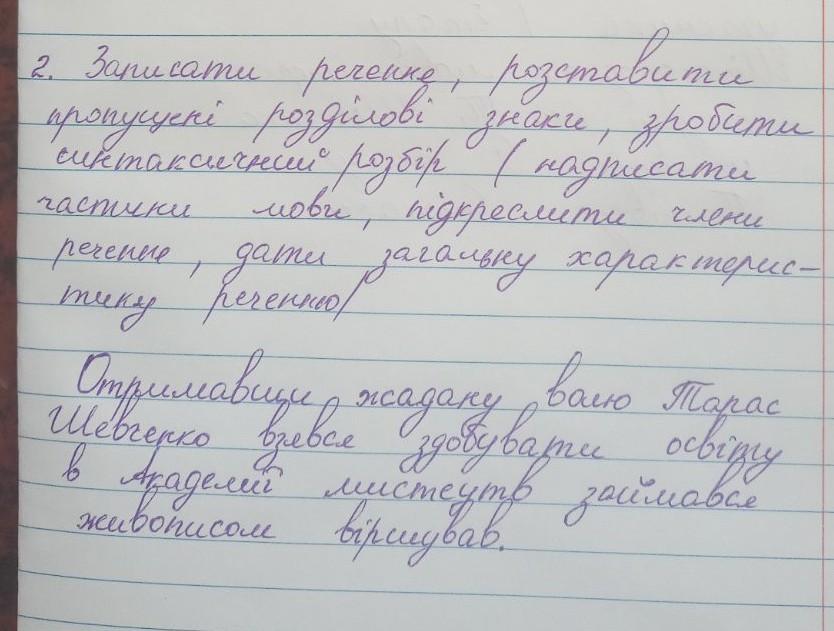 2. Записати речення, розставити
пропущені розділові знаки, зробити
синтаксичний розбір (надписати
частини мови, підкреслити члени
речення, дати загальну характерис-
тику реченню)
Отримавши жадану волю Тарас
Шевченко взявся здобувати освіту
в Академії мистецтв займався
живописом віршував.